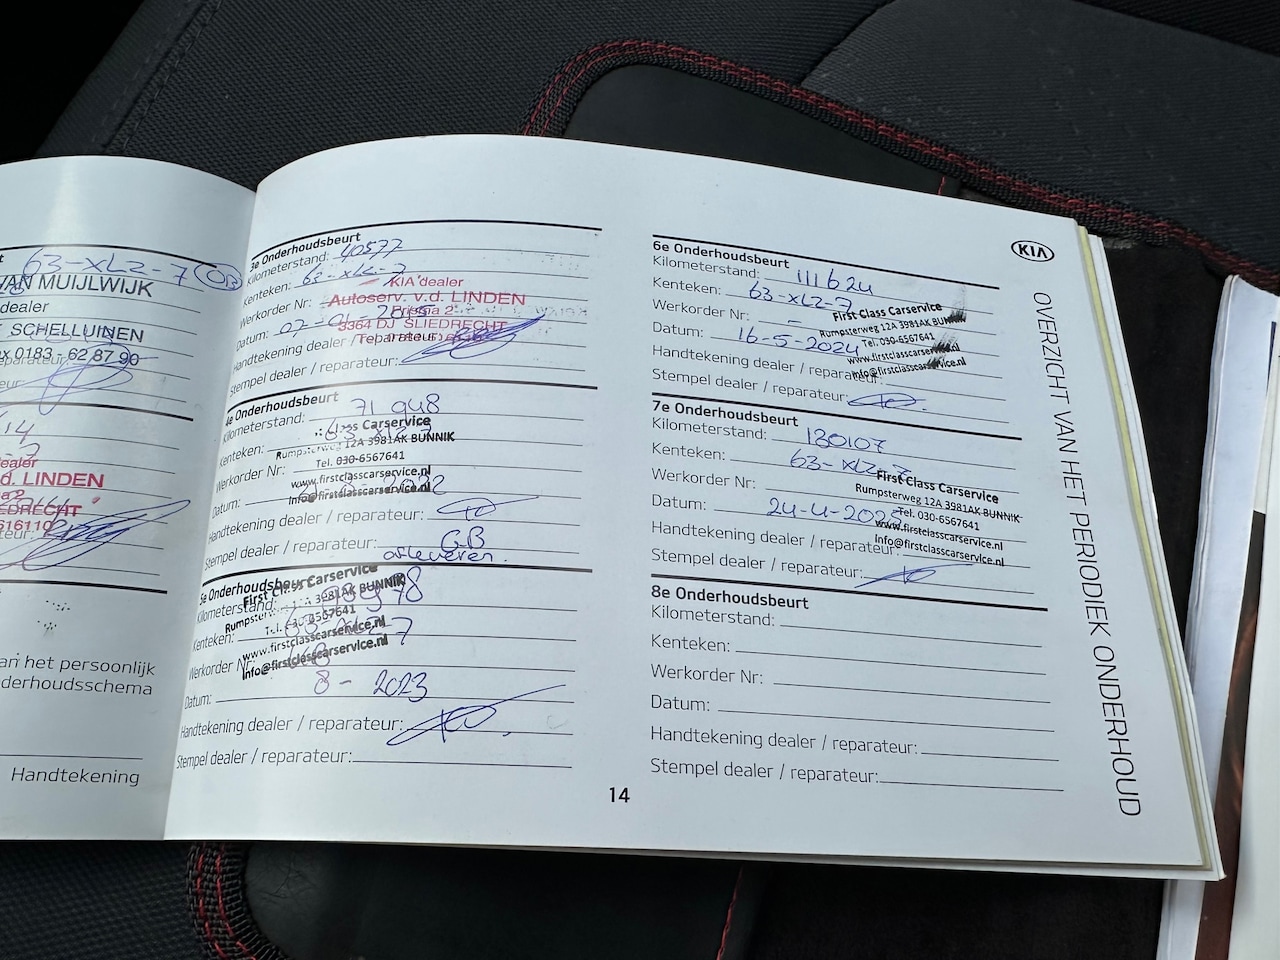 63-XLZ-7 OB
VAN MUIJLWIJK
dealer
SCHELLUINEN
0183 - 62 87 90
dealer
d. LINDEN
616110
an het persoonlijk
derhoudsschema
Handtekening
3e Onderhoudsbeurt
Kilometerstand: 40577
Kenteken: 63-XLZ-7
KIA dealer
Werkorder Nr:
Autoserv. v.d. LINDEN
Prisma 2
Datum: 07-01-2015
3364 DJ SLIEDRECHT
Handtekening dealer / reparateur:
Stempel dealer / reparateur:
4e Onderhoudsbeurt
Kilometerstand: 71 948
Kenteken: 63-XLZ-7
Class Carservice
Rumpsterweg 12A 3981AK BUNNIK
Werkorder Nr:
Tel. 030-6567641
www.firstclasscarservice.nl
Datum: 2022
Info@firstclasscarservice.nl
Handtekening dealer / reparateur:
Stempel dealer / reparateur: GB
afleveren.
5e Onderhoudsbeurt
First Class Carservice
Kilometerstand:
3981AK BUNNIK
Kenteken:
www.firstclasscarservice.nl
Werkorder Nr:
Info@firstclasscarservice.nl
Datum: 8 - 2023
Handtekening dealer / reparateur:
Stempel dealer / reparateur:
6e Onderhoudsbeurt
Kilometerstand: 111624
Kenteken: 63-XLZ-7
Werkorder Nr: -
First Class Carservice
Rumpsterweg 12A 3981AK BUNNIK
Datum: 16-5-2024
Tel. 030-6567641
www.firstclasscarservice.nl
Handtekening dealer / reparateur:
Info@firstclasscarservice.nl
Stempel dealer / reparateur:
7e Onderhoudsbeurt
Kilometerstand: 130107
Kenteken: 63-XLZ-7
Werkorder Nr:
First Class Carservice
Rumpsterweg 12A 3981AK BUNNIK
Datum: 24-4-2025
Tel. 030-6567641
www.firstclasscarservice.nl
Handtekening dealer / reparateur:
Info@firstclasscarservice.nl
Stempel dealer / reparateur:
8e Onderhoudsbeurt
Kilometerstand:
Kenteken:
Werkorder Nr:
Datum:
Handtekening dealer / reparateur:
Stempel dealer / reparateur:
14
KIA
OVERZICHT VAN HET PERIODIEK ONDERHOUD